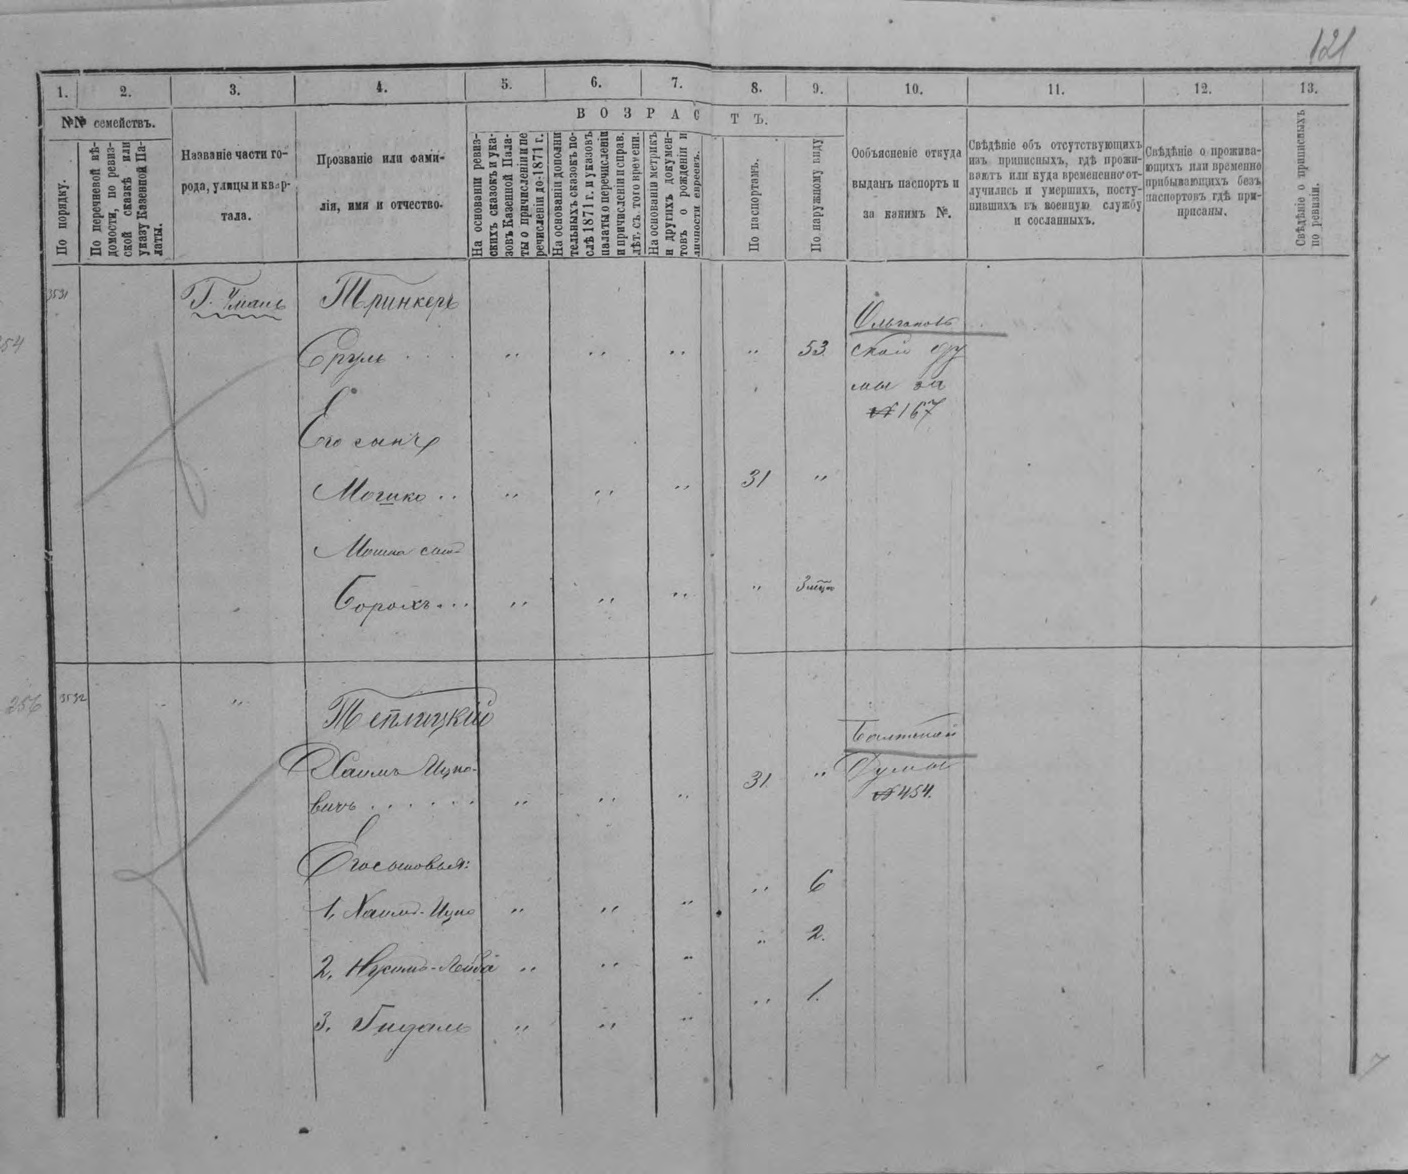 121
1. 2. 3. 4. 5. 6. 7. 8. 9. 10. 11. 12. 13.
№№ семействъ.
По порядку.
По перечневой вѣ-
домости, по ревиз-
ской сказкѣ или
указу Казенной Па-
латы.
Названіе части го-
рода, улицы и квар-
тала.
Прозваніе или фами-
лія, имя и отчество.
ВОЗРАСТЪ.
На основаніи ревиз-
скихъ сказокъ и ука-
зовъ Казенной Пала-
ты о причисленіи и пе
речисленіи до-1871 г.
На основаніи дополни
тельныхъ сказокъ по-
слѣ 1871 г. и указовъ
палаты о перечисленіи
и причисленіи и справ.
лѣт. съ. того времени.
На основаніи метрикъ
и другихъ докумен-
товъ о рожденіи и
личности евреевъ.
По паспортамъ.
По наружному виду
Ообъясненіе откуда
выданъ паспортъ и
за какимъ №.
Свѣдѣніе объ отсутствующихъ
изъ приписныхъ, гдѣ прожи-
ваютъ или куда временно от-
лучились и умершихъ, посту-
пившихъ въ военную службу
и сосланныхъ.
Свѣдѣніе о прожива-
ющихъ или временно
прибывающихъ безъ
паспортовъ гдѣ при-
приcаны.
Свѣдѣніе о приписныхъ
по ревизіи.
3531 Г. Умань Тринкеръ
Ольгопольской думы за № 167
Сруль 53
Его сынъ
Мошко 31
Мошка сынъ
Борохъ 3 мѣца
256 3532 Теплицкій
Балтской
Хаимъ Ицко-
вичъ 31 Думы
№ 454.
Его сыновья:
1. Хаимъ-Ицко 6
2. 2.
3. 1.